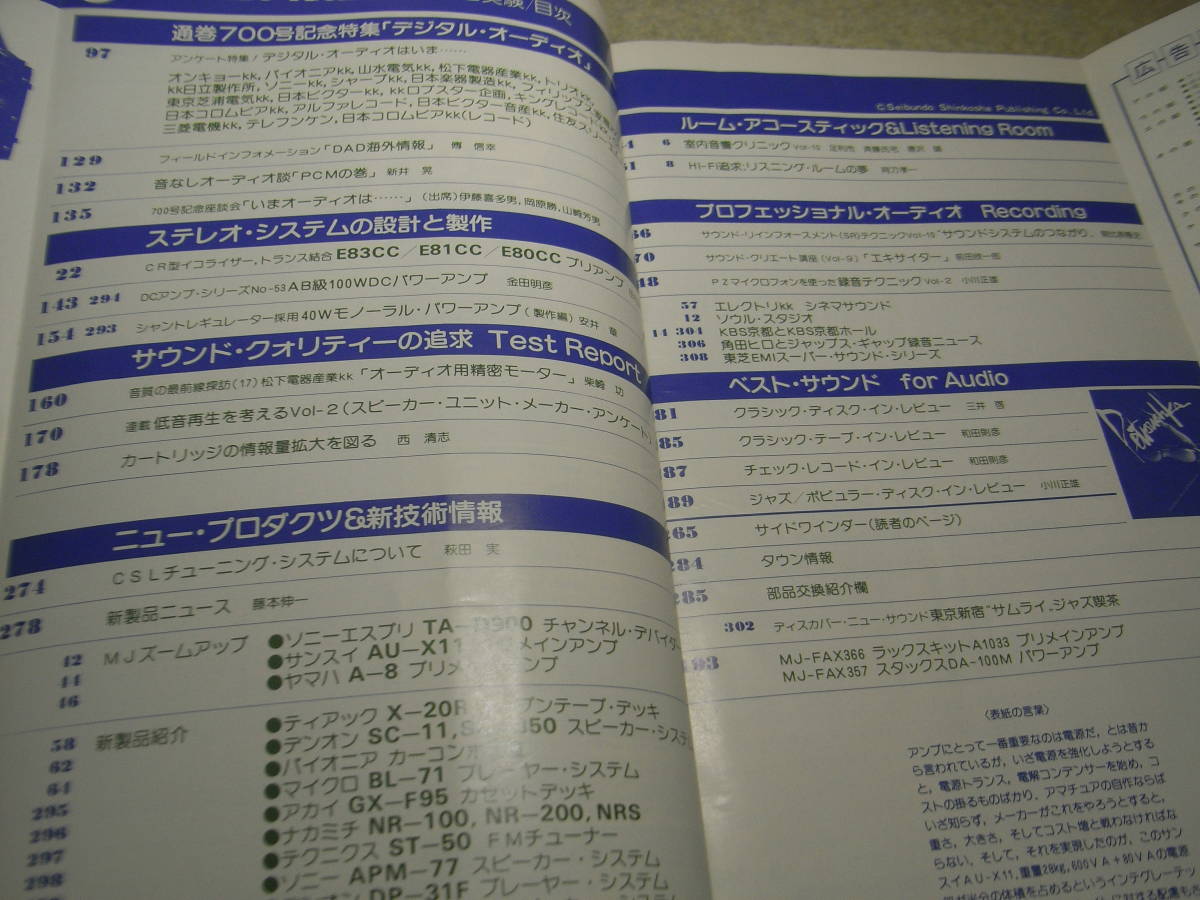 験/目次
通巻700号記念特集「デジタル・オーディオ」
97 アンケート特集!デジタル・オーディオはいま……
オンキョーkk,パイオニアkk,山水電気kk,松下電器産業kk,トリオkk,
kk日立製作所,ソニーkk,シャープkk,日本楽器製造kk,フィリップス
東京芝浦電気kk,日本ビクターkk,kkロブスター企画,キングレコード
日本コロムビアkk,アルファレコード,日本ビクター音産kk,住友スリー
三菱電機kk,テレフンケン,日本コロムビアkk(レコード)
129 フィールドインフォメーション「DAD海外情報」 傅 信幸
132 音なしオーディオ談「PCMの巻」 新井 晃
135 700号記念座談会「いまオーディオは……」(出席)伊藤喜多男,岡原勝,山崎芳男
ステレオ・システムの設計と製作
22 CR型イコライザー,トランス結合 E83CC/E81CC/E80CC プリアンプ
143 294 DCアンプ・シリーズNo-53 AB級100WDCパワーアンプ 金田明彦
154 293 シャントレギュレーター採用40Wモノーラル・パワーアンプ(製作編) 安井 章
サウンド・クォリティーの追求 Test Report
160 音質の最前線探訪(17)松下電器産業kk「オーディオ用精密モーター」 柴崎 功
170 連載 低音再生を考えるVol-2(スピーカー・ユニット・メーカー・アンケート)
178 カートリッジの情報量拡大を図る 西 清志
ニュー・プロダクツ&新技術情報
274 CSLチューニング・システムについて 萩田 実
278 新製品ニュース 藤本伸一
42 MJズームアップ ●ソニーエスプリ TA-D900 チャンネル・デバイダー
44 ●サンスイ AU-X11 メインアンプ
46 ●ヤマハ A-8 プリメインアンプ
58 新製品紹介 ●ティアック X-20R オープンテープ・デッキ
62 ●デンオン SC-11, 350 スピーカー・システム
64 ●パイオニア カーコンポ
295 ●マイクロ BL-71 プレーヤー・システム
296 ●アカイ GX-F95 カセットデッキ
297 ●ナカミチ NR-100, NR-200, NRS
298 ●テクニクス ST-50 FMチューナー
●ソニー APM-77 スピーカー・システム
DP-31F プレーヤー・システム
広告
©Seibundo Shinkosha Publishing Co., Ltd
ルーム・アコースティック&Listening Room
4 6 室内音響クリニック Vol-10
51 8 Hi-Fi追求:リスニング・ルームの夢
プロフェッショナル・オーディオ Recording
66 サウンド・リインフォースメント(SR)テクニックVol-10 "サウンドシステムのつながり"
70 サウンド・クリエート講座(Vol-9)「エキサイター」
48 PZマイクロフォンを使った録音テクニック Vol-2 小川正雄
57 エレクトリkk シネマサウンド
12 ソウル・スタジオ
14 304 KBS京都とKBS京都ホール
306 角田ヒロとジャップス・ギャップ録音ニュース
308 東芝EMIスーパー・サウンド・シリーズ
ベスト・サウンド for Audio
81 クラシック・ディスク・イン・レビュー 三井 啓
85 クラシック・テープ・イン・レビュー 和田則彦
87 チェック・レコード・イン・レビュー 和田則彦
89 ジャズ/ポピュラー・ディスク・イン・レビュー 小川正雄
265 サイドワインダー(読者のページ)
284 タウン情報
285 部品交換紹介欄
302 ディスカバー・ニュー・サウンド 東京新宿"サムライ"ジャズ喫茶
93 MJ-FAX366 ラックスキットA1033 プリメインアンプ
MJ-FAX357 スタックスDA-100M パワーアンプ
Petroushka
〈表紙の言葉〉
アンプにとって一番重要なのは電源だ,とは昔か
ら言われているが,いざ電源を強化しようとする
と,電源トランス,電解コンデンサーを始め,コ
ストの掛るものばかり,アマチュアの自作ならば
いざ知らず,メーカーがこれをやろうとすると,
重さ,大きさ,そしてコスト増と戦わなければな
らない,そして,それを実現したのが,このサン
スイAU-X11,重量28kg,600VA+80VAの電源
半分の体積を占めるというインテグレーテッ